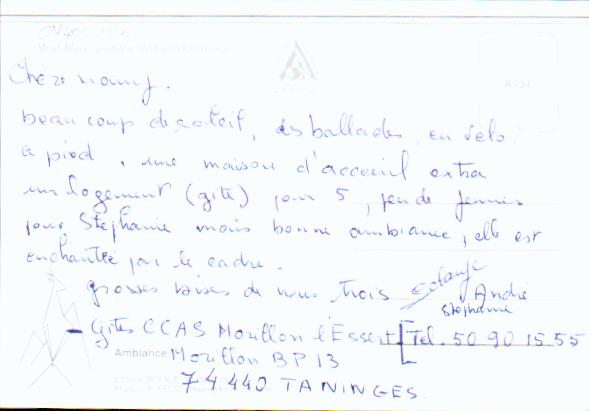 Chère mamy.
beaucoup de soleil, des ballades, en velo
a pied, une maison d'acceuil extra
un logement (gite) pour 5, peu de jeunes
pour Stephanie mais bonne ambiance, elle est
enchantée par le cadre.
grosses bises de nous trois Solange
André
stephanie
- Gites CCAS Morillon l'Essert [Tel. 50 90 15 55
Ambiance Morillon BP 13
74 440 TANINGES.